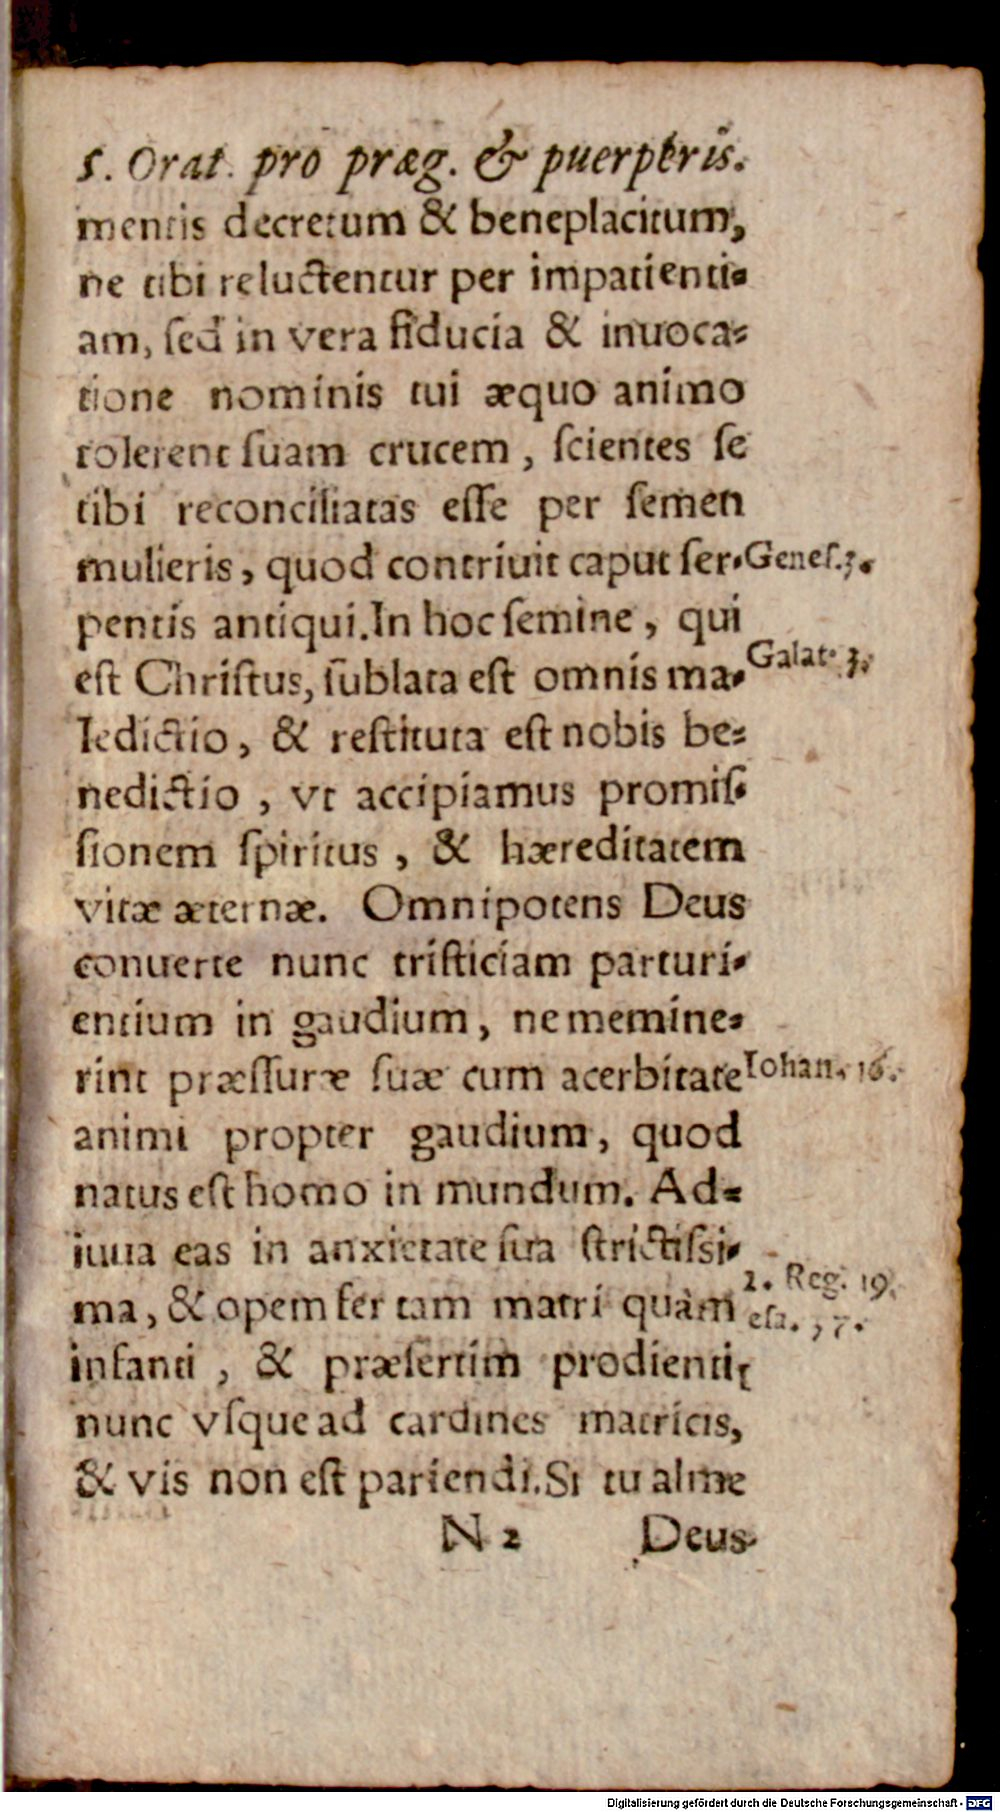 5. Orat. pro præg. & puerperis.
mentis decretum & beneplacitum,
ne tibi reluctentur per impatienti-
am, ſed in vera fiducia & inuoca-
tione nominis tui æquo animo
tolerent ſuam crucem, ſcientes ſe
tibi reconciliatas eſſe per ſemen
mulieris, quod contriuit caput ſer- Geneſ. 3.
pentis antiqui. In hoc ſemine, qui
eſt Chriſtus, ſublata eſt omnis ma- Galat. 3.
ledictio, & reſtituta eſt nobis be-
nedictio, vt accipiamus promiſ-
ſionem ſpiritus, & hæreditatem
vitæ æternæ. Omnipotens Deus
conuerte nunc triſticiam parturi-
entium in gaudium, ne memine-
rint præſſuræ ſuæ cum acerbitate Iohan. 16.
animi propter gaudium, quod
natus eſt homo in mundum. Ad-
iuua eas in anxietate ſua ſtrictiſsi-
ma, & opem fer tam matri quàm 2. Reg. 19.
infanti, & præſertim prodienti eſa. 37.
nunc vſque ad cardines matricis,
& vis non eſt pariendi. Si tu alme
N 2 Deus
Digitalisierung gefördert durch die Deutsche Forschungsgemeinschaft - DFG